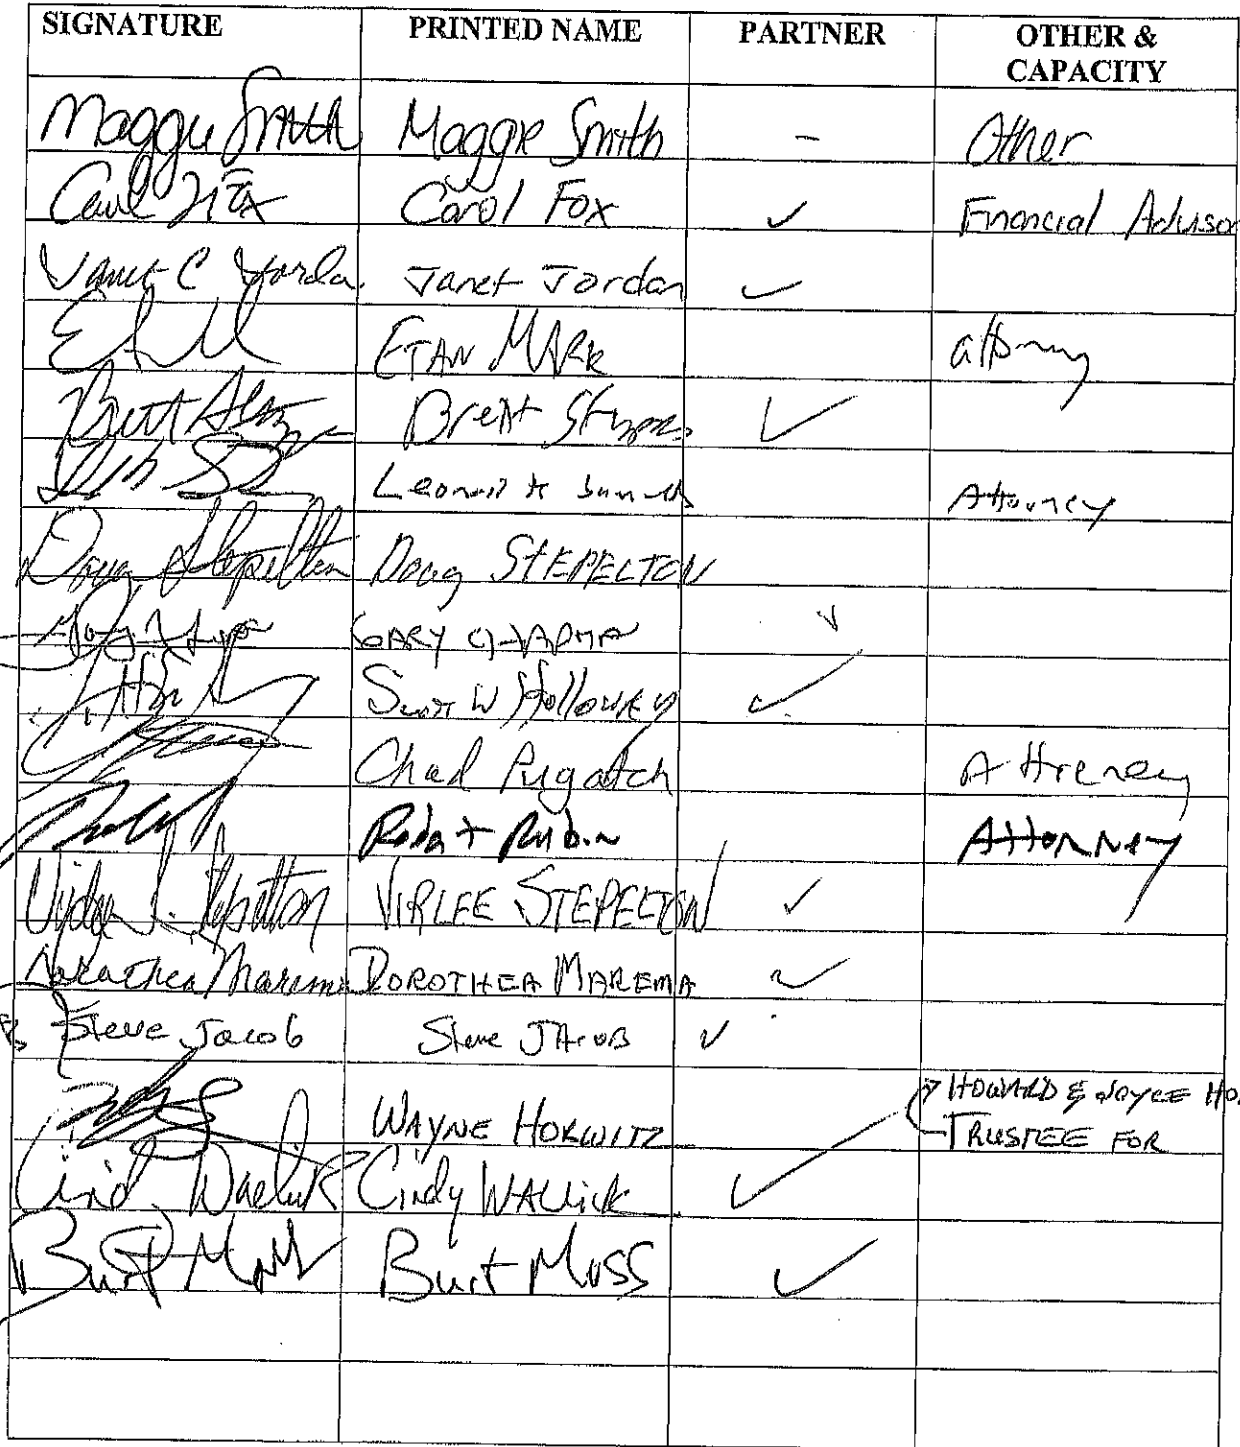 SIGNATURE PRINTED NAME PARTNER OTHER & CAPACITY
Maggie Smith Maggie Smith - Other
Carol Fox Carol Fox ✓ Financial Advisor
Janet C Jorda Janet Jordan ✓
ETAN MARK attorney
Brett Brett ✓
Attorney
Doug Stepelton Doug STEPELTON
GARY ✓
Scott W Holloway ✓
Chad Pugatch Attorney
Rubin Attorney
Virlee L. Stepelton VIRLEE STEPELTON ✓
Dorothea Marema DOROTHEA MAREMA ✓
Steve Jacob Steve JAcoB ✓
WAYNE HORWITZ ✓ HOWARD & JOYCE HO
TRUSTEE FOR
Cindy Wallick Cindy WAllick ✓
Burt Moss Burt Moss ✓